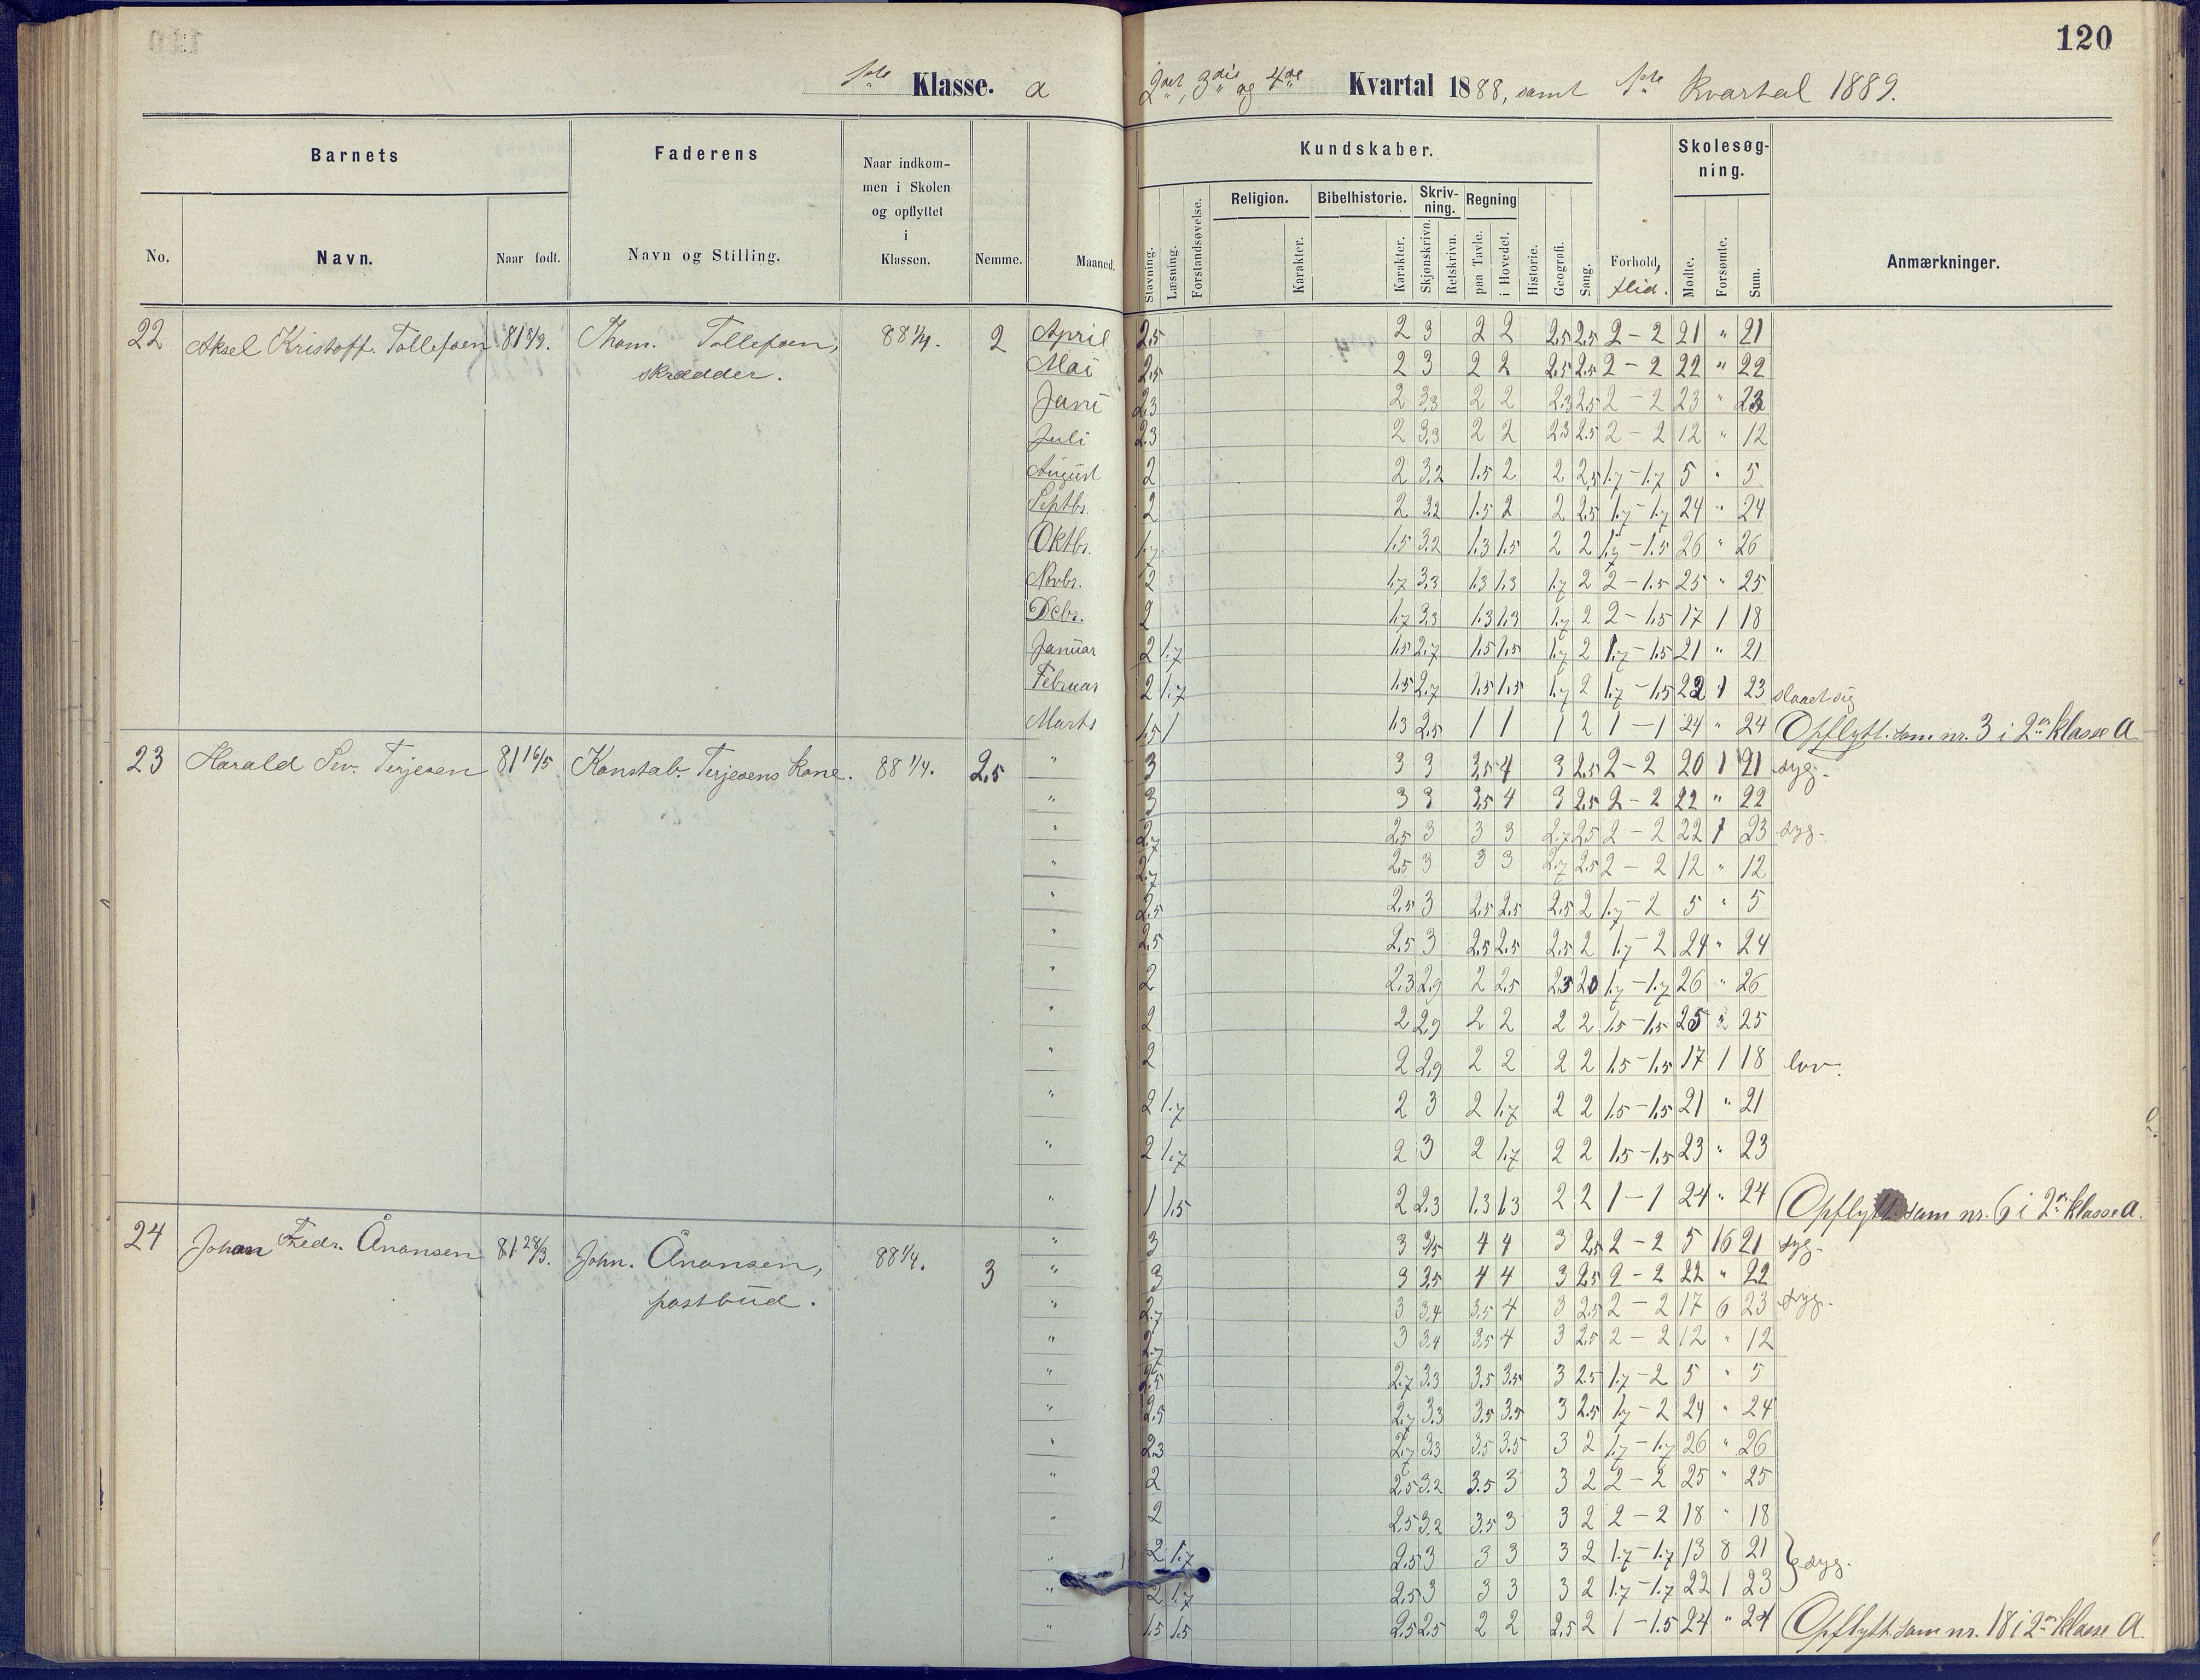 120
1ste Klasse. a
2det, 3die og 4de Kvartal 1888, samt 1ste Kvartal 1889.
Barnets Faderens Naar indkommen i Skolen og opflyttet i Klassen. Nemme. Maaned.
No. Navn. Naar født. Navn og Stilling.
Kundskaber. Skolesøgning.
Religion. Bibelhistorie. Skrivning. Regning
Stavning. Læsning. Forstandsøvelse. Karakter. Karakter. Skjønskrivn. Retskrivn. paa Tavle. i Hovedet. Historie. Geografi. Sang. Forhold, flid. Mødte. Forsømte. Sum. Anmærkninger.
22 Aksel Kristoff. Tollefsen 81 Thom. Tollefsen, 88 1/4. 2 April 2,5 2 3 2 2 2,5 2,5 2-2 21 " 21
skrædder. Mai 2,5 2 3 2 2 2,5 2,5 2-2 22 " 22
Juni 2,3 2 3,3 2 2 2,3 2,5 2-2 23 " 23
Juli 2,3 2 3,3 2 2 2,3 2,5 2-2 12 " 12
August 2 2 3,2 1,5 2 2 2,5 1,7-1,7 5 " 5
Septbr. 2 2 3,2 1,5 2 2 2,5 1,7-1,7 24 " 24
Oktbr. 1,7 1,5 3,2 1,3 1,5 2 2 1,7-1,5 26 " 26
Novbr. 2 1,7 3,3 1,3 1,3 1,7 2 2-1,5 25 " 25
Debr. 2 1,7 3,3 1,3 1,3 1,7 2 2-1,5 17 1 18
Januar 2 1,7 1,5 2,7 1,5 1,5 1,7 2 1,7-1,5 21 " 21
Februar 2 1,7 1,5 2,7 1,5 1,5 1,7 2 1,7-1,5 22 1 23 slaaet sig
Marts 1,5 1 1,3 2,5 1 1 1 2 1-1 24 " 24 Opflytt. som nr. 3 i 2en klasse A
23 Harald Sev. Terjesen 81 16/5 Konstab. Terjesens kone. 88 1/4. 2,5 " 3 3 3 3,5 4 3 2,5 2-2 20 1 21 syg.
" 3 3 3 3,5 4 3 2,5 2-2 22 " 22
" 2,7 2,5 3 3 3 2,7 2,5 2-2 22 1 23 syg.
" 2,7 2,5 3 3 3 2,7 2,5 2-2 12 " 12
" 2,5 2,5 3 2,5 2,5 2,5 2 1,7-2 5 " 5
" 2,5 2,5 3 2,5 2,5 2,5 2 1,7-2 24 " 24
" 2 2,3 2,9 2 2,5 2,3 2 1,7-1,7 26 " 26
" 2 2 2,9 2 2 2 2 1,5-1,5 25 " 25
" 2 2 2,9 2 2 2 2 1,5-1,5 17 1 18 lov.
" 2 1,7 2 3 2 1,7 2 2 1,5-1,5 21 " 21
" 2 1,7 2 3 2 1,7 2 2 1,5-1,5 23 " 23
" 1 1,5 2 2,3 1,3 1,3 2 2 1-1 24 " 24 Opflytt. som nr. 6 i 2en klasse A.
24 Johan Fredr. Ånonsen 81 28/3. John. Ånonsen, 88 1/4. 3 " 3 3 3,5 4 4 3 2,5 2-2 5 16 21 syg.
postbud. " 3 3 3,5 4 4 3 2,5 2-2 22 " 22
" 2,7 3 3,4 3,5 4 3 2,5 2-2 17 6 23 syg.
" 2,7 3 3,4 3,5 4 3 2,5 2-2 12 " 12
" 2,5 2,7 3,3 3,5 3,5 3 2,5 1,7-2 5 " 5
" 2,5 2,7 3,3 3,5 3,5 3 2,5 1,7-2 24 " 24
" 2,3 2,7 3,3 3,5 3,5 3 2 1,7-1,7 26 " 26
" 2 2,5 3,2 3,5 3 3 2 2-2 25 " 25
" 2 2,5 3,2 3,5 3 3 2 2-2 18 " 18
" 2 1,7 2,5 3 3 3 3 2 1,7-1,7 13 8 21
" 2 1,7 2,5 3 3 3 3 2 1,7-1,7 22 1 23 } syg.
" 1,5 1,5 2,5 2,5 2 2 2,5 2 1-1,5 24 " 24 Opflytt. som nr. 18 i 2en klasse A.